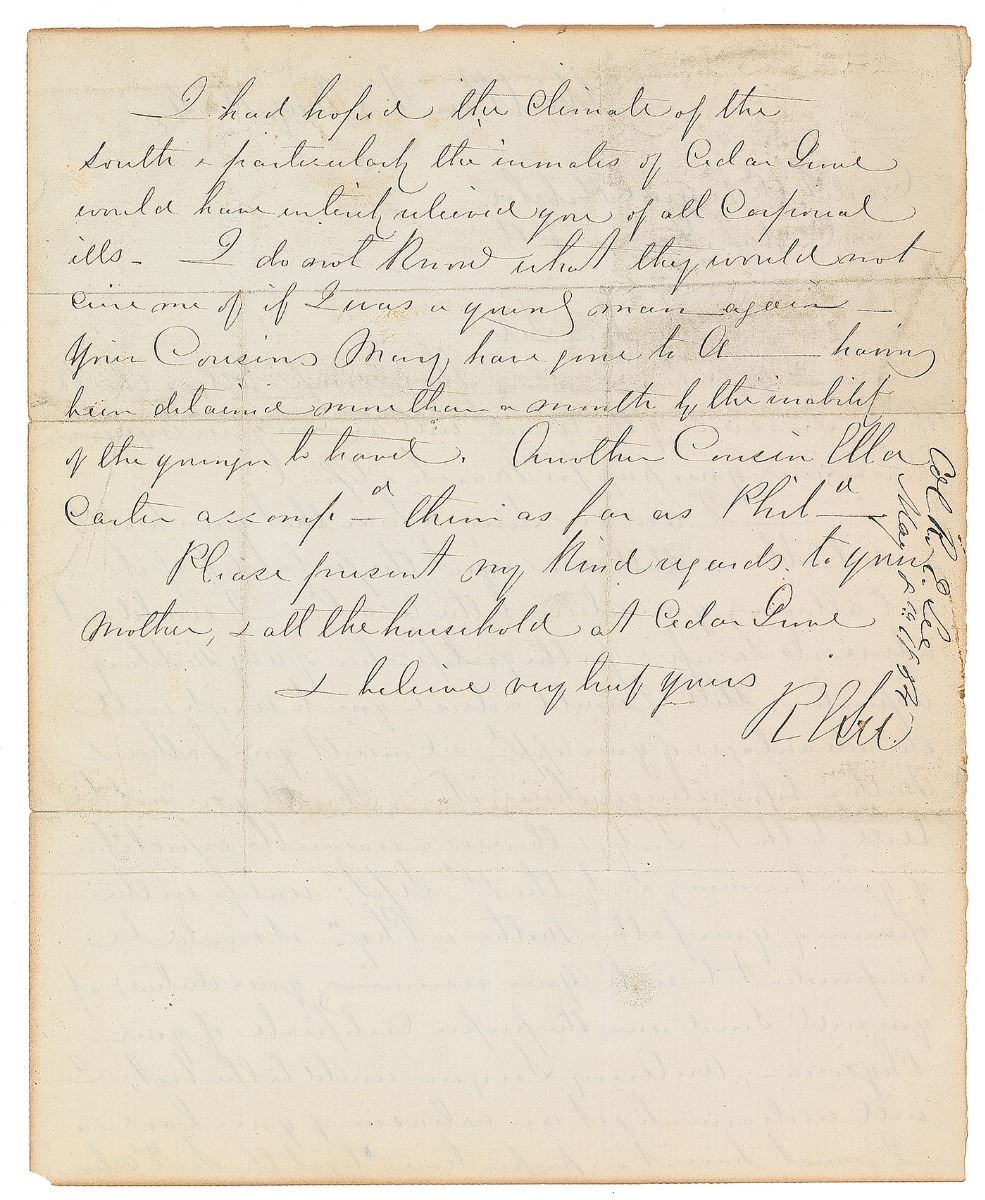 I had hoped the climate of the
south & particularly the inmates of Cedar Grove
would have entirely relieved you of all Corporeal
ills - I do not Know what they would not
cure me of if I was a young man again -
Your Cousins Mary have gone to A—— having
been detained more than a month by the inability
of the younger to travel. Another Cousin Ella
Carter accompd them as far as Phild
Please present my Kind regards to your
Mother, & all the household at Cedar Grove
& believe very truly yours
R E Lee
Col R. E. Lee
May